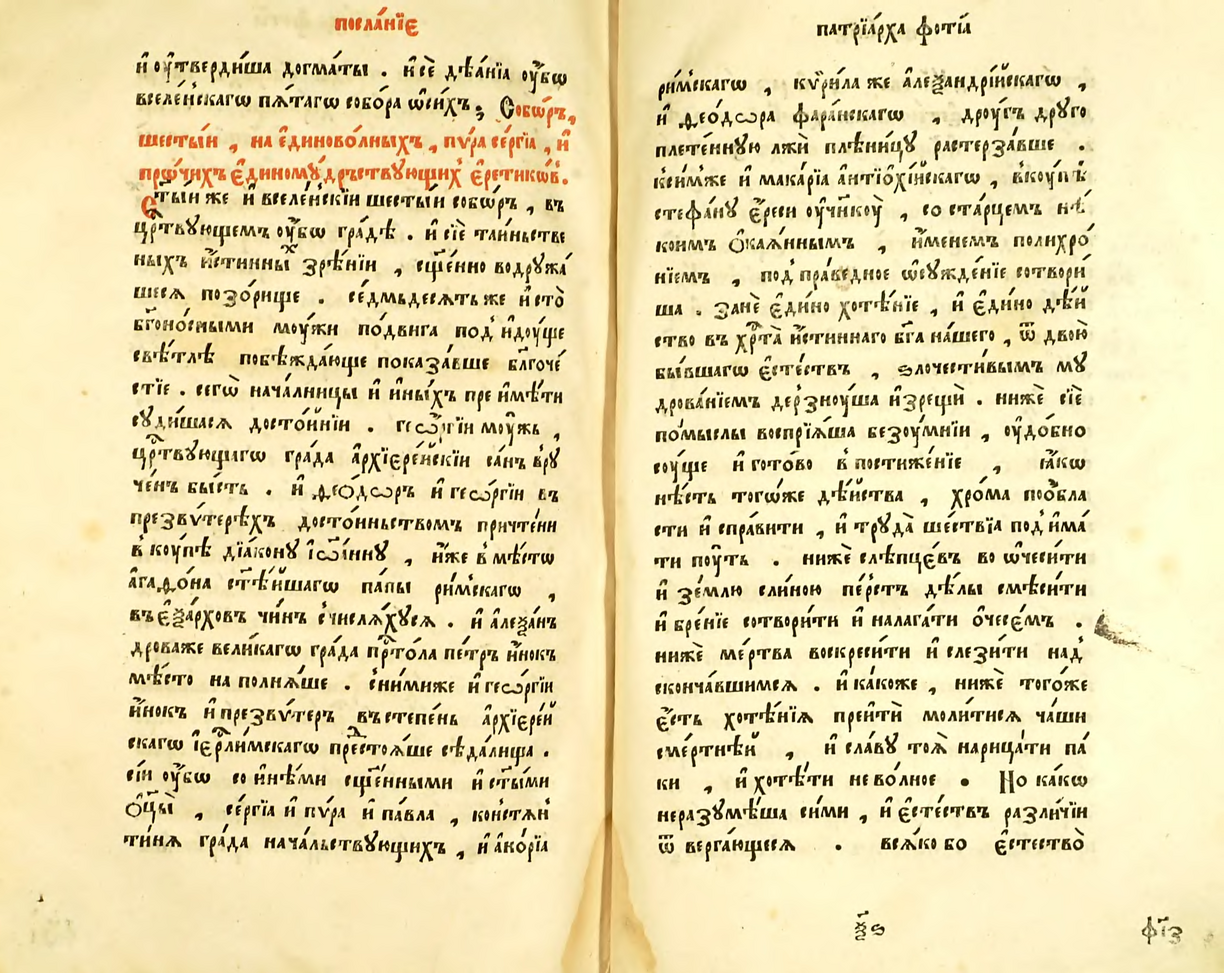 посла́нїе
и҆ ѹ҆тверди́ша догма́ты . и҆ сѐ дѣѧ́нїа ѹ҆́бѡ
вселе́нскагѡ пѧ́тагѡ собо́ра ѡ҆ си́хъ ; Собѡ́ръ,
шесты́и , на є҆диново́лныхъ , пѵ́ра се́ргїа , и҆
прѡ́чихъ є҆диномꙋ́дръствꙋющих є҆ретикѡ́в.
ст҃ы́и же и҆ вселе́нскїи шесты́и собѡ́ръ , въ
црⷭ҇твꙋющемъ ѹ҆́бѡ гра́дѣ . и҆ сїѐ таи́ньстве
ныхъ и҆́стинныⷯ зрѣ́нїи , сщ҃е́нно водрꙋжа́
шесѧ позо́рище . се́дмьдесѧтъ же и҆ сто̀
бг҃оно́сными моу́жи по́двига под̾идоу́ще
свѣ́тлѣ побѣжда́юще показа́вше бл҃гоче́
стїе . сегѡ̀ нача́лницы и҆ и҆ны́хъ пре имѣ́ти
сꙋди́шасѧ досто́йнїи . гео́ргїи моу́жь ,
црⷭ҇твꙋющагѡ гра́да а҆рхїере́йскїи са́нъ врꙋ
че́нъ бы́сть . и҆ ѳео́дѡръ и҆ гео́ргїи въ
презвѵ́терѣхъ досто́иньствомъ причте́ни
в коу́пѣ дїа́конꙋ і҆ѡа́ннꙋ , и҆́же в мѣ́сто
а҆гаѳо́на ст҃ѣ́йшагѡ па́пы ри́мскагѡ ,
въ є҆ѯа́рхов чи́нъ счислѧ́хꙋсѧ . и҆ а҆леѯа́н
дрова же вели́кагѡ гра́да прⷭ҇то́ла пе́тръ и҆́нокъ
мѣ́сто наполнѧ́ше . сни́миже и҆ гео́ргїи
и҆́нокъ и҆ презвѵ́теръ въ сте́пень а҆рхїере́й
скагѡ і҆ерⷭ҇ли́мскагѡ престоѧ́ше сѣда́лища .
сі́и ѹ҆́бѡ со и҆нѣ́ми сщ҃е́нными и҆ ст҃ы́ми
ѻ҆ц҃ы̀ , се́ргїа и҆ пѵ́ра и҆ па́вла , констѧн
ти́нѧ гра́да нача́льствꙋющихъ , и҆ а҆но́рїа
патрїа́рха фотїа́
ри́мскагѡ , кѵ́рила же а҆леѯандрі́йскагѡ ,
и҆ ѳео́дѡра фара́нскагѡ , дроу́гъ дрꙋго
плете́ннꙋю лжѝ плѣни́цꙋ растерза́вше .
ксимже и҆ мака́рїа а҆нтїохі́йскагѡ , вкоу́пѣ
стефа́нꙋ є҆́реси ѹ҆чн҃икоу̀ , со ста́рцемъ нѣ́
коимъ ѻ҆каѧ́ннымъ , и҆́менемъ полихро́
нїемъ , под̾ пра́ведное ѡ҆сꙋжде́нїе сотвори́
ша . занѐ є҆ди́но хотѣ́нїе , и҆ є҆ди́но дѣ́й
ство въ хрⷭ҇та̀ и҆́стиннаго бг҃а на́шего , ѿ двою̀
бы́вшагѡ є҆сте́ствъ , ѕлочести́вымъ мꙋ
дрова́нїемъ дерзноу́ша и҆зрещѝ . нижѐ сїѐ
по́мыслы воспрїѧ́ша безоу́мнїи , ѹ҆до́бно
соу́ще и҆ гото́во в постиже́нїе , ꙗ҆́кѡ
нѣ́сть тогѡ́же дѣ́йства , хро́ма поѻ҆бла
сти и҆ спра́вити , и҆ трꙋда̀ ше́ствїа под̾има́
ти поу́ть . нижѐ слѣпце́въ во ѡ҆чеси́ти
и҆ зе́млю сли́ною пе́рстъ дѣ́лы смѣси́ти
и҆ бре́нїе сотвори́ти и҆ налага́ти ѻ҆чесе́мъ .
нижѐ ме́ртва воскреси́ти и҆ слези́ти над̾
сконча́вшимсѧ . и҆ ка́коже , нижѐ того́же
є҆́сть хотѣ́нїѧ прейтѝ моли́тисѧ ча́ши
сме́ртнѣй , и҆ сла́вꙋ тоѧ̀ нарица́ти па́
ки , и҆ хотѣ́ти нево́лное . Но ка́кѡ
неразꙋмѣ́ша си́ми , и҆ є҆сте́ствъ разли́чїи
ѿ верга́ющесѧ . всѧ́ко бо є҆стество̀
ѯѕ
фі҃з